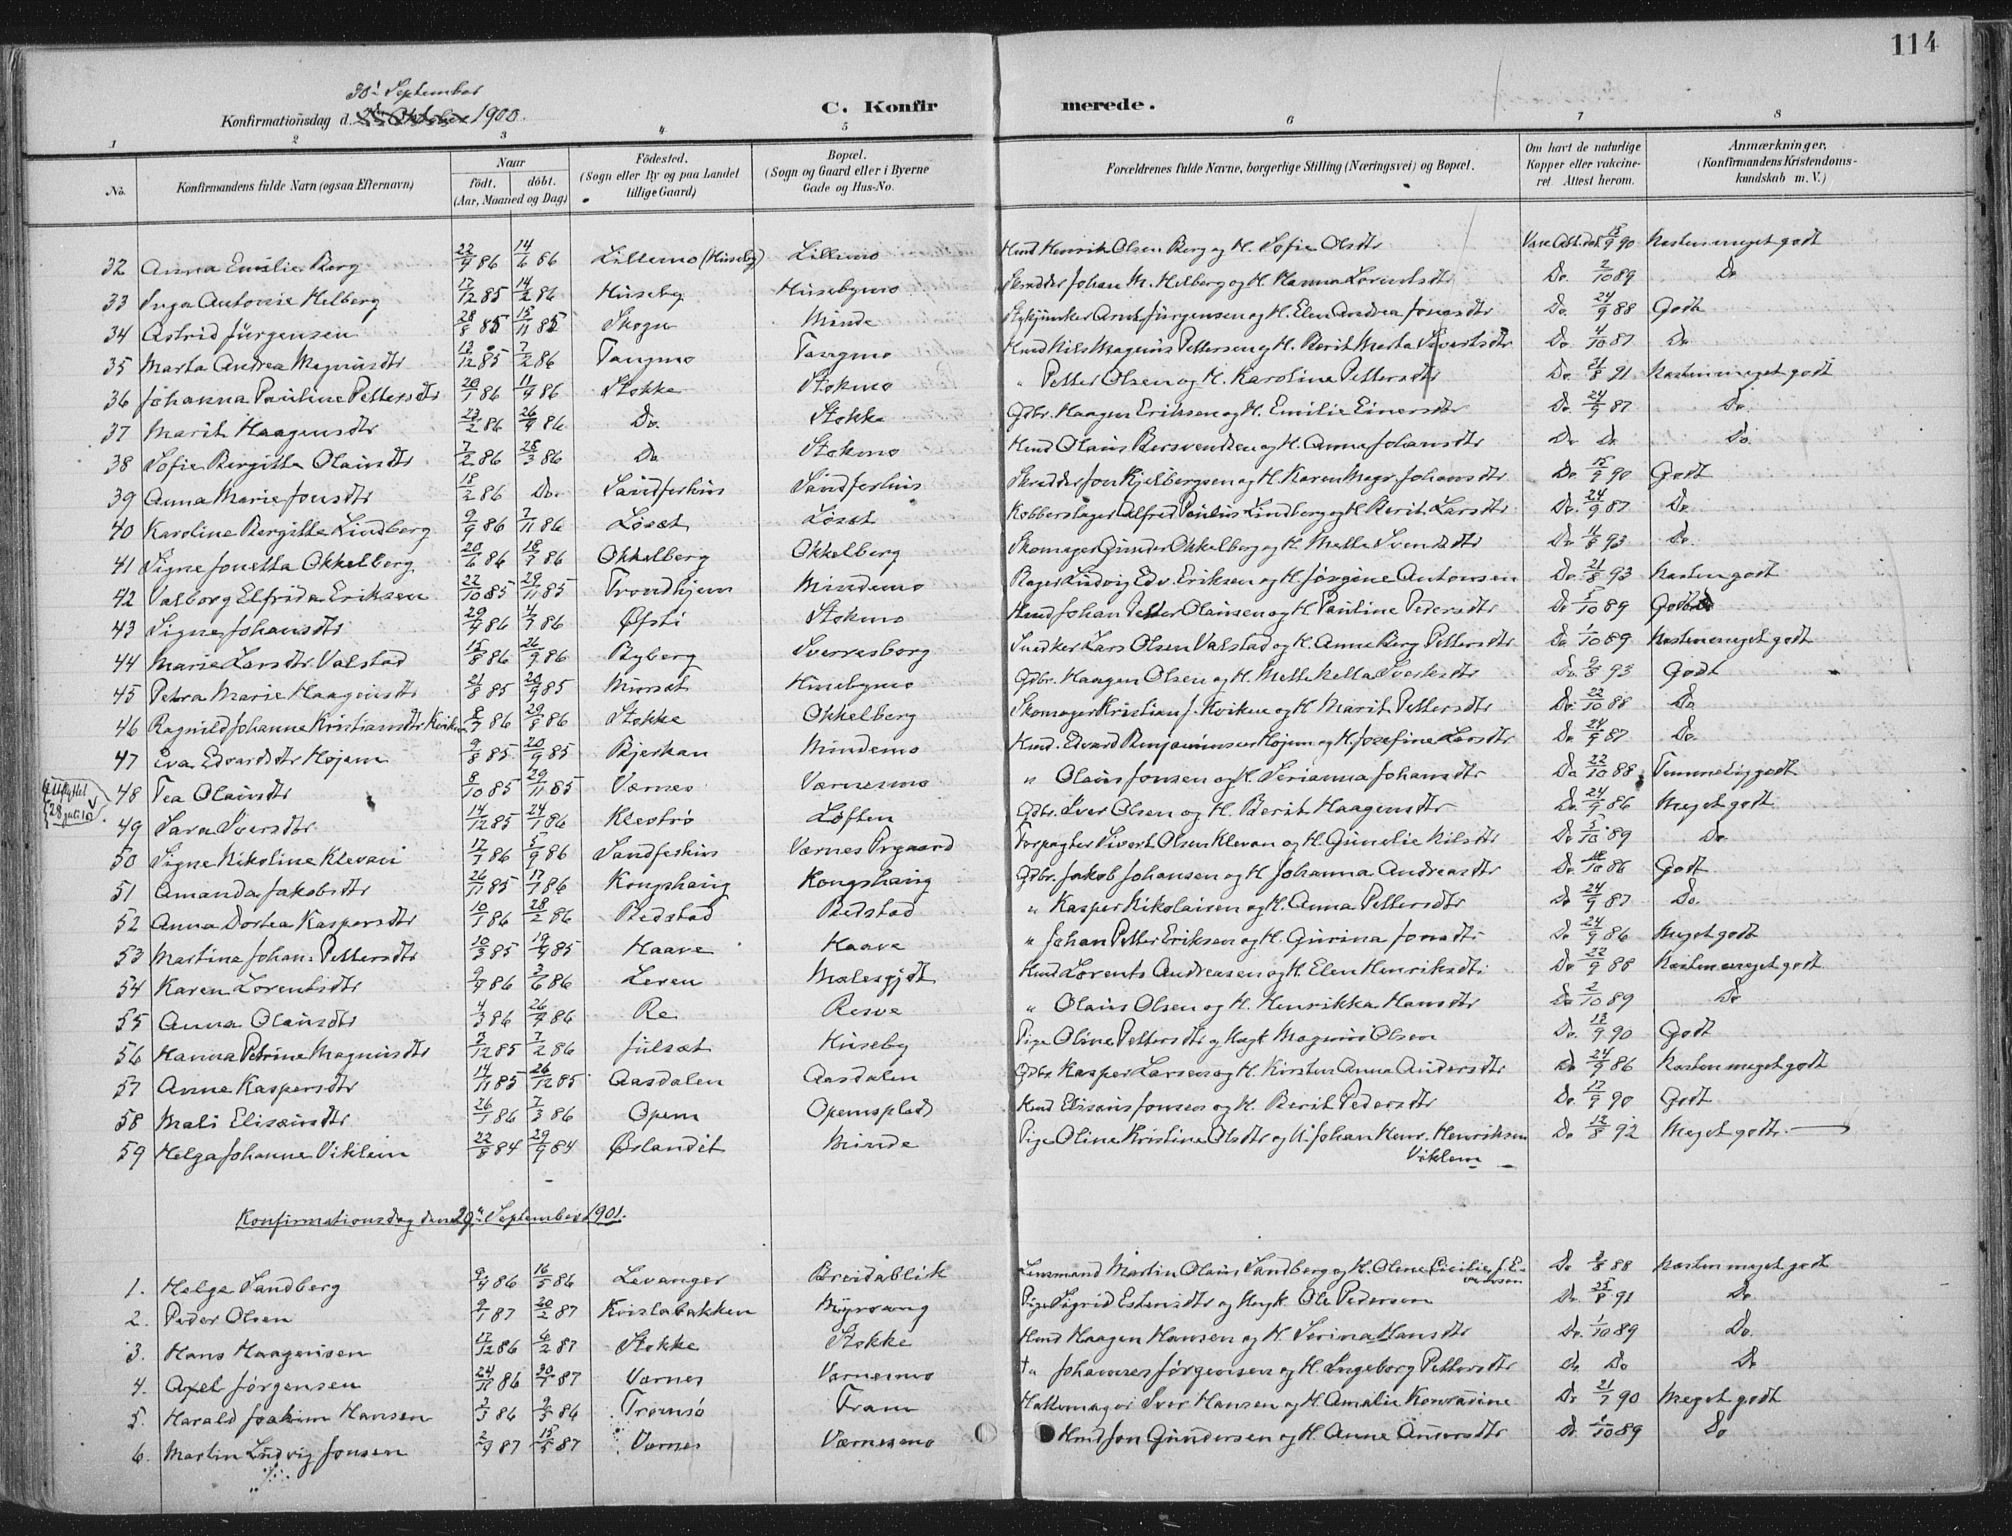 114
30te September
Konfirmationsdag d. 1900.
C. Konfirmerede.
1 2 3 4 5 6 7 8
No. Konfirmandens fulde Navn (ogsaa Efternavn) Naar født. døbt. (Aar, Maaned og Dag) Fødested. (Sogn eller By og paa Landet tillige Gaard) Bopæl. (Sogn og Gaard eller i Byerne Gade og Hus-No. Forældrenes fulde Navne, borgerlige Stilling (Næringsvei) og Bopæl. Om havt de naturlige Kopper eller vakcineret. Attest herom. Anmærkninger, (Konfirmandens Kristendomskundskab m. V.)
32 Anna Emilie Berg 22/4 86 14/6 86 Lillemo (Huseby) Lillemo Hmd Henrik Olsen Berg og H. Sofie Olsdtr Vac. Att. dat. 15/9 90 Næsten meget godt
33 Inga Antonie Helberg 17/12 85 14/2 86 Huseby Husebymo Skrædder Johan M. Helberg og H. Hanna Lorentsdtr Do. 2/10 89 Do
34 Astrid Jürgensen 28/8 85 15/11 85 Skogn Minde Arnt Jürgensen og H. Elen Andrea Jonasdtr Do. 24/9 88 Godt
35 Marta Andrea Magnusdtr 13/12 85 7/2 86 Tangmo Tangmo Hmd Nils Magnus Pettersen og H. Berit Marta Sivertsdtr Do 4/10 87 Do
36 Johanna Pauline Pettersdtr 20/1 86 11/4 86 Stokke Stokmo " Petter Olsen og H. Karoline Pettersdtr Do 21/8 91 Næsten meget godt
37 Marit Haagensdtr 23/2 86 26/4 86 Do. Stokke Gdbr. Haagen Eriksen og H. Emilie Einersdtr Do. 24/9 87 Do.
38 Sofie Bergitte Olausdtr 7/2 86 28/3 86 Do Stokmo Hmd Olaus Bersvendsen og H. Anne Johansdtr Do Do Do.
39 Anna Marie Jonsdtr 18/2 86 Do. Sandferhus Sandferhus Skrædder Jon Kjelbergsen og H. Karen Magr. Johansdtr Do 15/9 90 Godt
40 Karoline Bergitte Lindberg 9/9 86 7/11 86 Løset Løset Kobberslager Alfred Paulus Lindberg og H. Berit Larsdtr Do. 24/9 87 Do
41 Signe Jonetta Okkelberg 20/6 86 18/7 86 Okkelberg Okkelberg Skomager Gunder Okkelberg og H. Mette Svendsdtr Do 11/8 93 Do.
42 Valborg Elfrida Eriksen 22/10 85 29/11 85 Trondhjem Mindemo Bager Ludvig Edv. Eriksen og H. Jørgine Antonsen Do. 21/8 93 Næsten godt
43 Signe Johansdtr 29/4 86 4/7 86 Øfsti Stokmo Hmd Johan Petter Olausen og H. Pauline Pedersdtr Do 5/10 89 Godt
44 Marie Larsdtr Valstad 15/8 86 26/9 86 Byberg Sverresborg Snedker Lars Olsen Valstad og H. Anne Berg Pettersdtr Do 1/10 89 Næsten meget godt
45 Petra Marie Haagensdtr 21/8 85 20/9 85 Minsæt Husebymo Gdbr. Haagen Olsen og H. Mette Sivertsdtr Do 9/8 93 Godt
46 Ragnild Johanne Kristiansdtr Kvikne 8/7 86 29/8 86 Stokke Okkelberg Skomager Kristian J. Kvikne og H. Marit Pettersdtr Do. 22/10 88 Do
47 Eva Edvardsdtr Højem 9/8 85 20/9 85 Bjerkan Mindemo Hmd. Edvard Benjaminsen Højem og H. Josefine Larsdtr Do 24/9 87 Do.
48 Tea Olausdtr 8/10 85 29/11 85 Værnes Værnesmo " Olaus Jonsen og H. Serianna Johansdtr Do 22/10 88 Temmelig godt
Utflyttet 28 juli 10
49 Sara Iversdtr 14/12 85 24/1 86 Klestrø Løften Gdbr. Iver Olsen og H. Berit Haagensdtr Do. 24/9 86 Meget godt
50 Signe Nikoline Klevan 17/7 86 5/9 86 Sandferhus Værnes Prgaard Forpagter Sivert Olsen Klevan og H. Gunelie Nilsdtr Do 5/10 89 Do.
51 Amanda Jakobsdtr 26/11 85 17/1 86 Kongshaug Kongshaug Gdbr. Jakob Johansen og H. Johanna Andreasdtr Do. 18/10 86 Godt
52 Anna Dortea Kaspersdtr 10/1 86 28/2 86 Redstad Redstad " Kasper Nikolaisen og H. Anna Pettersdtr Do 24/9 87 Do.
53 Martine Johan-Pettersdtr 10/3 85 19/4 85 Haave Haave " Johan Petter Eriksen og H. Gurina Jonsdtr Do 24/9 86 Meget godt
54 Karen Lorentsdtr 9/4 86 3/6 86 Leren Malesgjdt Hmd Lorents Andreasen og H. Elen Henriksdtr Do 22/9 88 Næsten meget godt
55 Anna Olausdtr 4/3 86 26/4 86 Re Resve " Olaus Olsen og H. Henrikka Hansdtr Do 2/10 89 Do
56 Hanna Petrine Magnusdtr 3/12 85 7/2 86 Julsæt Huseby Pige Oline Pettersdtr og Ungk Magnus Olsen Do. 18/9 90 Godt
57 Anne Kaspersdtr 14/11 85 26/12 85 Aasdalen Aasdalen Gdbr. Kasper Larsen og H. Kirsten Anna Andersdtr do 24/9 86 Næsten meget godt
58 Mali Elisæusdtr 26/1 86 7/3 86 Opem Opemsplads Hmd Elisæus Jonsen og H. Berit Pedersdtr Do. 17/9 90 Godt
59 Helga Johanne Viklem 22/8 84 29/9 84 Ørlandet Minde Pige Oline Kristine Olsdtr og U. Johan Henr. Henriksen Viklem Do 12/8 92 Meget godt.
Konfirmationsdag den 29de September 1901.
1. Helge Sandberg 9/4 86 16/5 86 Levanger Breidablik Lensmand Martin Olaus Sandberg og H. Oline Cicilie J. Evensen Do 3/8 88 Næsten meget godt
2. Peder Olsen 9/1 87 20/2 87 Kvislabakken Myrvang Pige Sigrid Estensdtr og Ungk. Ole Pedersen Do. 25/8 91 Do
3. Hans Haagensen 17/12 86 6/2 87 Stokke Stokke Hmd Haagen Hansen og H. Serina Hansdtr Do. 1/10 89 Do.
4. Axel Jørgensen 24/11 86 30/1 87 Værnes Værnesmo " Johannes Jørgensen og H. Ingeborg Pettersdtr do Do Do
5. Harald Joakim Hansen 3/3 86 9/5 86 Tromsø Fram Hattemager Iver Hansen og H. Amalie Konradine Do 21/7 90 Meget godt
6. Martin Ludvig Jonsen 2/4 87 15/5 87 Værnes Værnesmo Hmd Jon Gundersen og H. Anne Andersdtr Do 1/10 89 Do